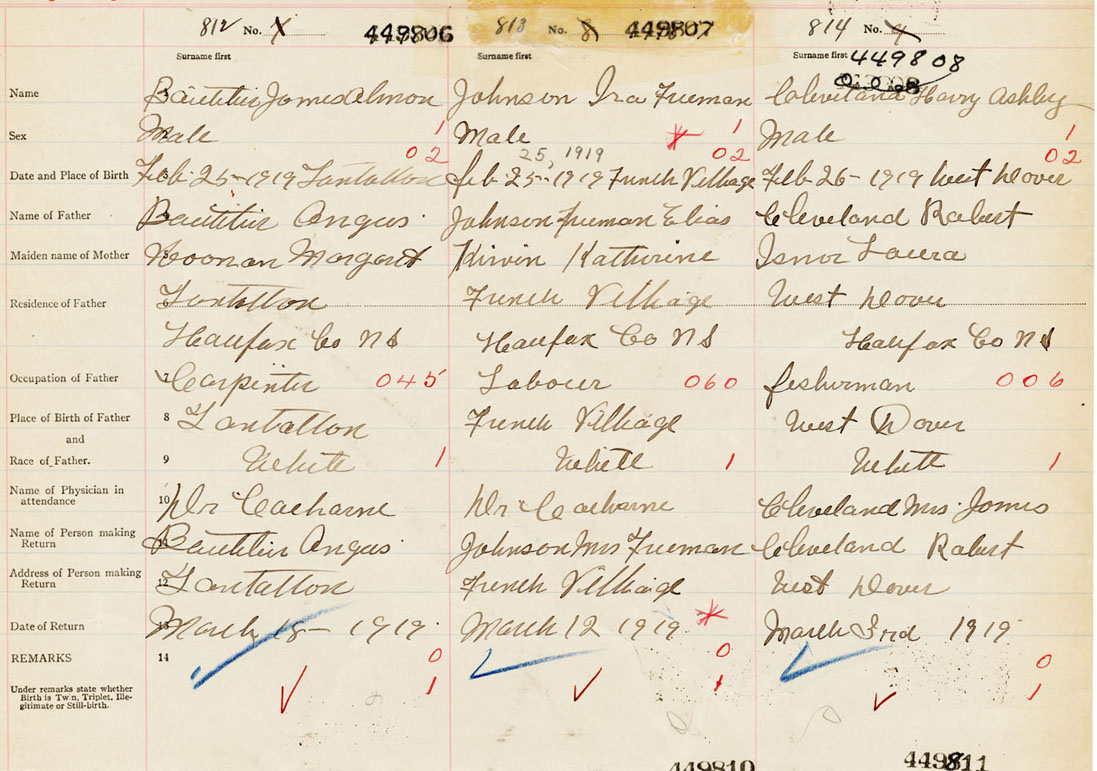 812 No. 449806 813 No. 8 449807 814 No.
Surname first Surname first Surname first 449808
Name James Almon Johnson Ira Freeman Cleveland Harry Ashley
Sex Male 1 Male 1 Male 1
02 25, 1919 02 02
Date and Place of Birth Feb. 25-1919 Tantallon feb 25-1919 French Village Feb 26-1919 West Dover
Name of Father Angus Johnson Freeman Elias Cleveland Robert
Maiden name of Mother 5 Noonan Margaret Kirvin Katherine Isnor Laura
Residence of Father Tantallon French Village West Dover
Halifax Co NS Halifax Co NS Halifax Co NS
Occupation of Father 7 Carpenter 045 Labour 060 fisherman 006
Place of Birth of Father 8 Tantallon French Village West Dover
and
Race of Father. 9 White 1 White 1 White 1
Name of Physician in
attendance 10 Dr Dr Cleveland Mrs James
Name of Person making
Return 11 Angus Johnson Mrs Freeman Cleveland Robert
Address of Person making
Return 12 Tantallon French Village West Dover
Date of Return 13 March 18- 1919 March 12 1919 March 3rd 1919
REMARKS 14 0 0 0
Under remarks state whether
Birth is Twin, Triplet, Ille-
gitimate or Still-birth. 1 1 1
449810 449811